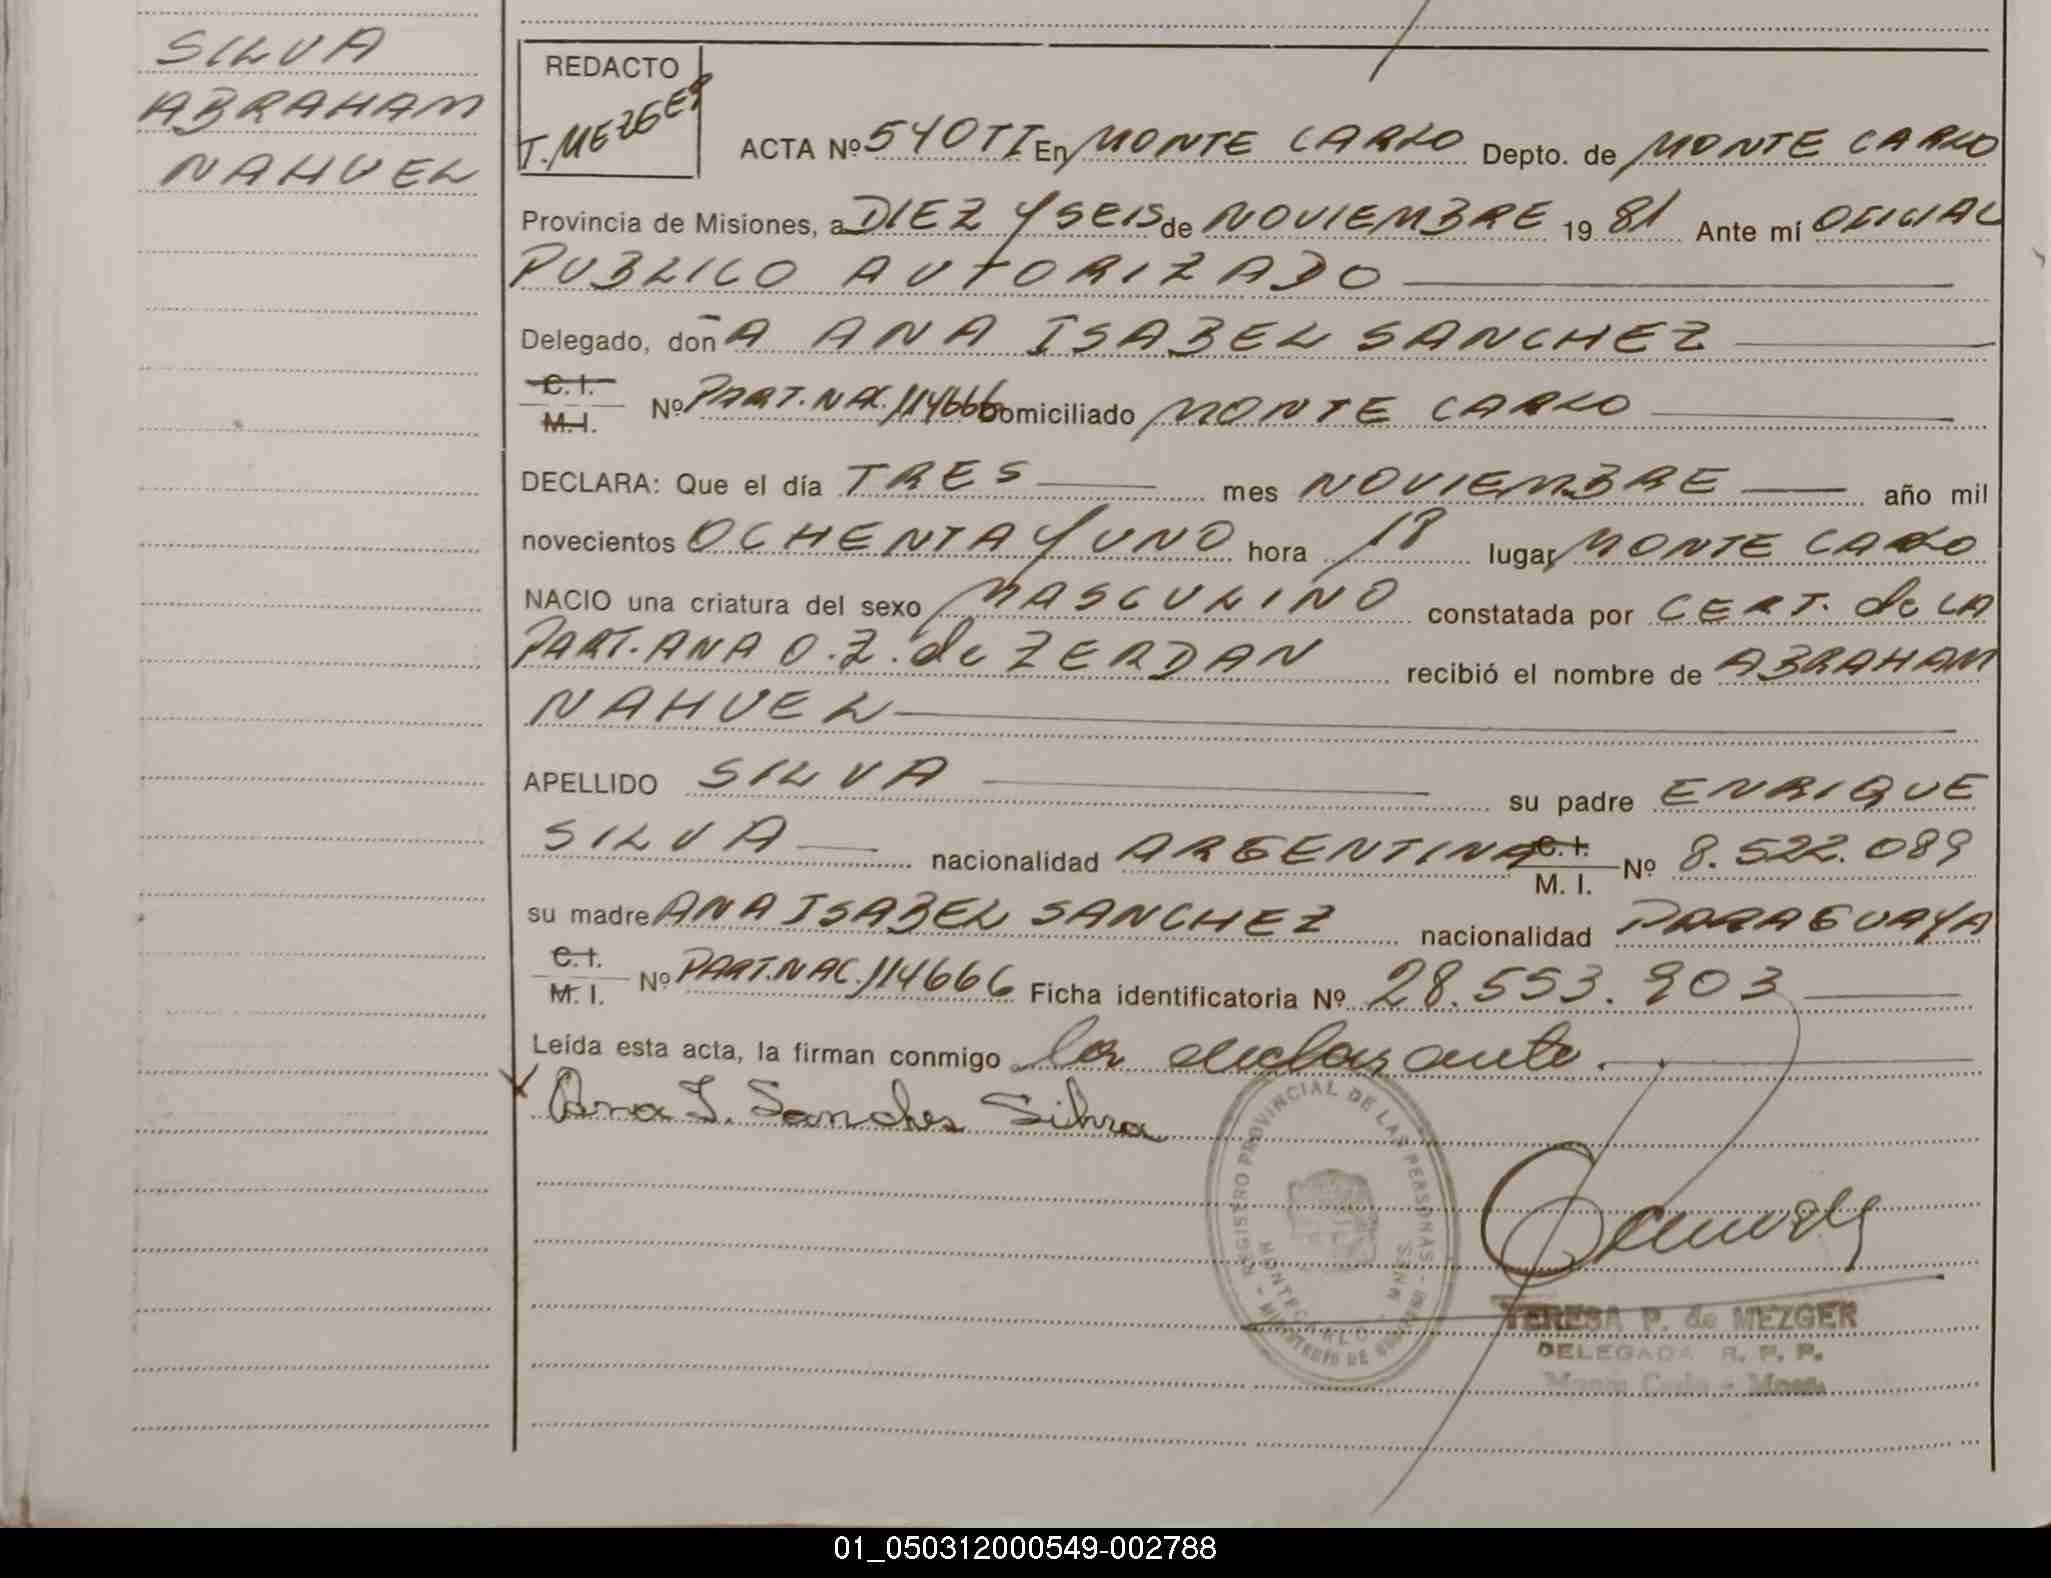 SILVA
ABRAHAM
NAHUEL
REDACTO
T. MEZGER
ACTA Nº 540 TI En MONTE CARLO Depto. de MONTE CARLO
Provincia de Misiones, a DIEZ Y SEIS de NOVIEMBRE 19 81 Ante mí OFICIAL
PUBLICO AUTORIZADO
Delegado, doñA ANA ISABEL SANCHEZ
C. I.
M. I. Nº PART. NAC. 114666 Domiciliado MONTE CARLO
DECLARA: Que el día TRES mes NOVIEMBRE año mil
novecientos OCHENTA Y UNO hora 18 lugar MONTE CARLO
NACIO una criatura del sexo MASCULINO constatada por CERT. de LA
PART. ANA O. Z. de ZERDAN recibió el nombre de ABRAHAM
NAHUEL
APELLIDO SILVA su padre ENRIQUE
SILVA nacionalidad ARGENTINA C. I. M. I. Nº 8.522.089
su madre ANA ISABEL SANCHEZ nacionalidad PARAGUAYA
C. I.
M. I. Nº PART. NAC. 114666 Ficha identificatoria Nº 28.553.903
Leída esta acta, la firman conmigo la declarante.
Ana I. Sanches Silva
REGISTRO PROVINCIAL DE LAS PERSONAS - MINISTERIO DE GOBIERNO -
MONTECARLO - MNES.
TERESA P. de MEZGER
DELEGADA R. P. P.
Monte Carlo - Mnes.
01_050312000549-002788